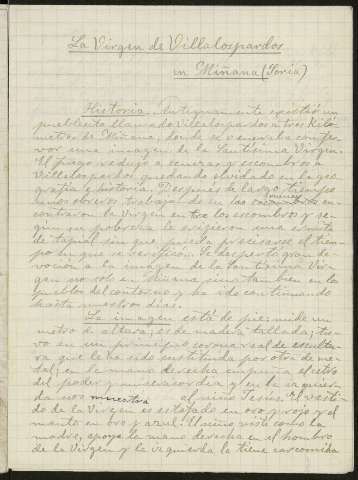 La Virgen de Villalospardos
en Miñana (Soria)
Historia. Antiguamente existió un
pueblecito llamado Villalospardos a tres kiló
metros de Miñana, donde se veneraba con fer-
vor una imagen de la Santísima Virgen.
El fuego redujo a cenizas y escombros a
Villalospardos, quedando olvidado en la geo-
grafía e historia. Después de largo tiempo
unos obreros, trabajando en las
contraron la Virgen entre los escombros y se-
gún su pobreza le erigieron una ermita
de tapial sin que pueda precisarse el tiem-
po en que se verificó. Se despertó gran de-
voción a la imagen de la Santísima Vir-
gen no solo en Miñana sino también en los
pueblos del contorno y ha ido continuando
hasta nuestros días.
La imagen está de pie; mide un
metro de altura; es de madera tallada; tu-
vo en un principio corona real de escultu-
ra que le ha sido sustituida por otra de me-
tal; en la mano derecha empuña el cetro
del poder y misericordia y en la izquier-
da nos muestra al niño Jesús. El vesti-
do de la Virgen es estofado en oro y rojo y el
manto en oro y azul. El niño, viste como la
madre, apoya la mano derecha en el hombro
de la Virgen y la izquierda la tiene carcomida